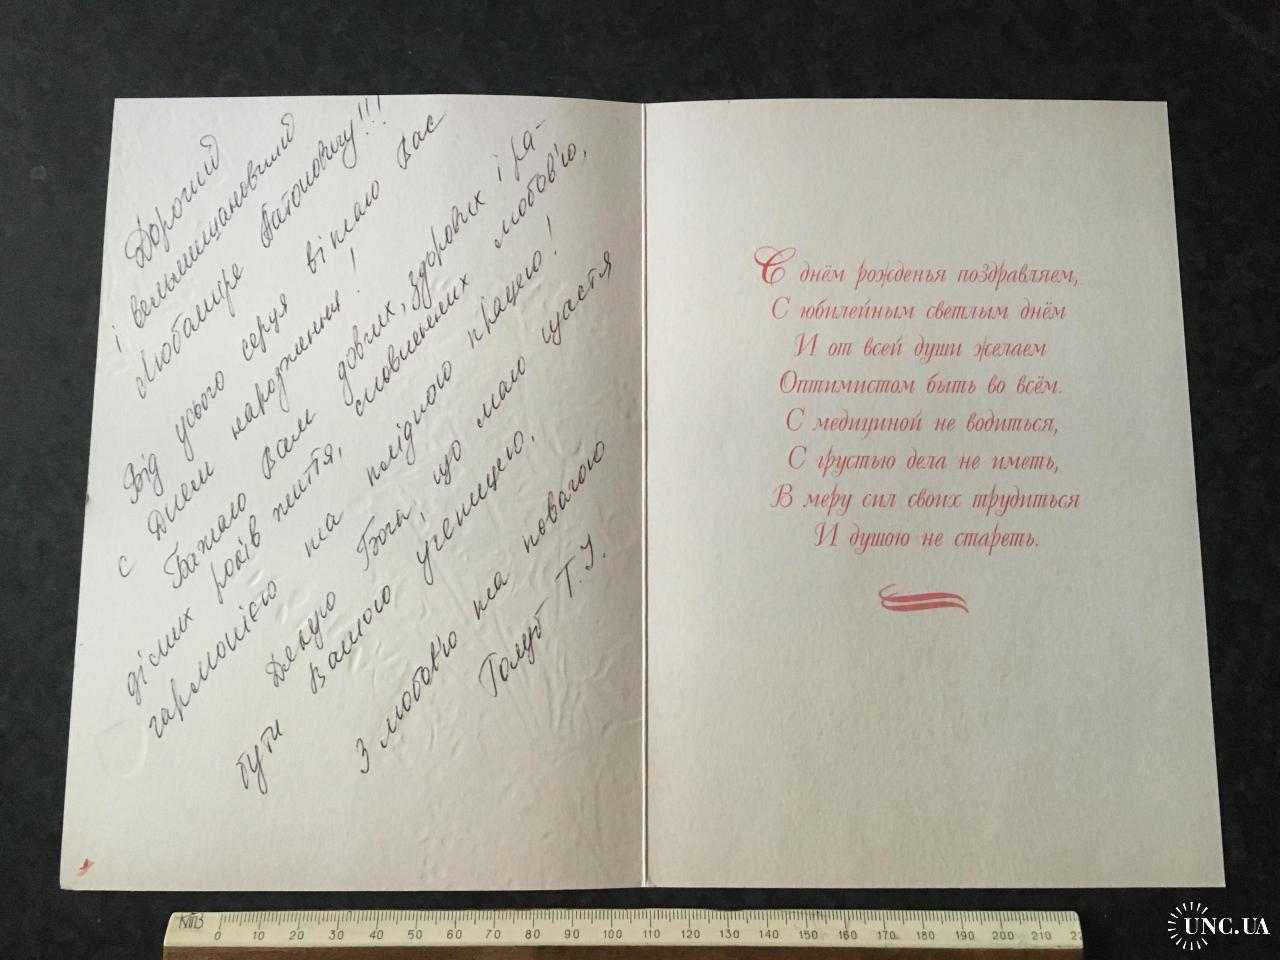 Дорогий
і вельмишановний
Любомире Антоновичу!!!
Від усього серця вітаю Вас
с Днем народження!
Бажаю Вам довгих, здорових і ра-
дісних років життя, сповнених любов'ю,
гармонією та плідною працею!
Дякую Богу, що маю щастя
бути Вашою ученицею.
З любов'ю та повагою
Голуб Т. І.
С днём рожденья поздравляем,
С юбилейным светлым днём
И от всей души желаем
Оптимистом быть во всём.
С медициной не водиться,
С грустью дела не иметь,
В меру сил своих трудиться
И душою не стареть.
0 10 20 30 40 50 60 70 80 90 100 110 120 130 140 150 160 170 180 190 200 210 22
UNC.UA